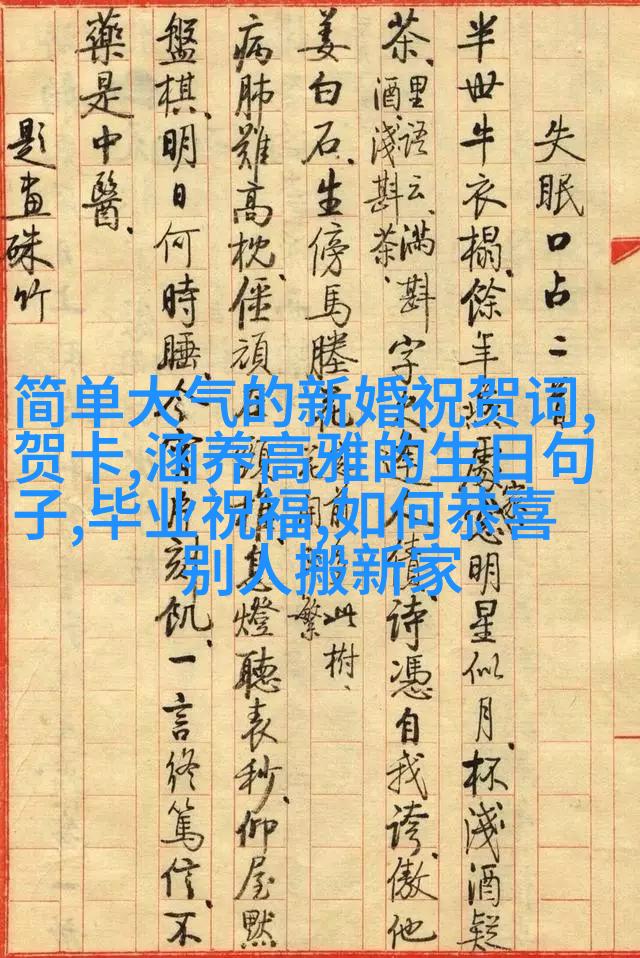 失眠口占二
半世牛衣榻、餘年明星似月、杯淺酒疑
茶、里語云、满斟酒、淺斟茶、字人債、詩憑自我誇、傲他
姜白石、生傍馬塍花前開繁此樹、
病肺難高枕、僵頑息燈聽表秒、仰屋黙
盤棋、明日何時睡、今片刻飢、一言終篤信、不
藥是中醫、
題畫硃竹
简单大气的新婚祝贺词,
贺卡,涵养高雅的生日句
子,毕业祝福,如何恭喜
别人搬新家